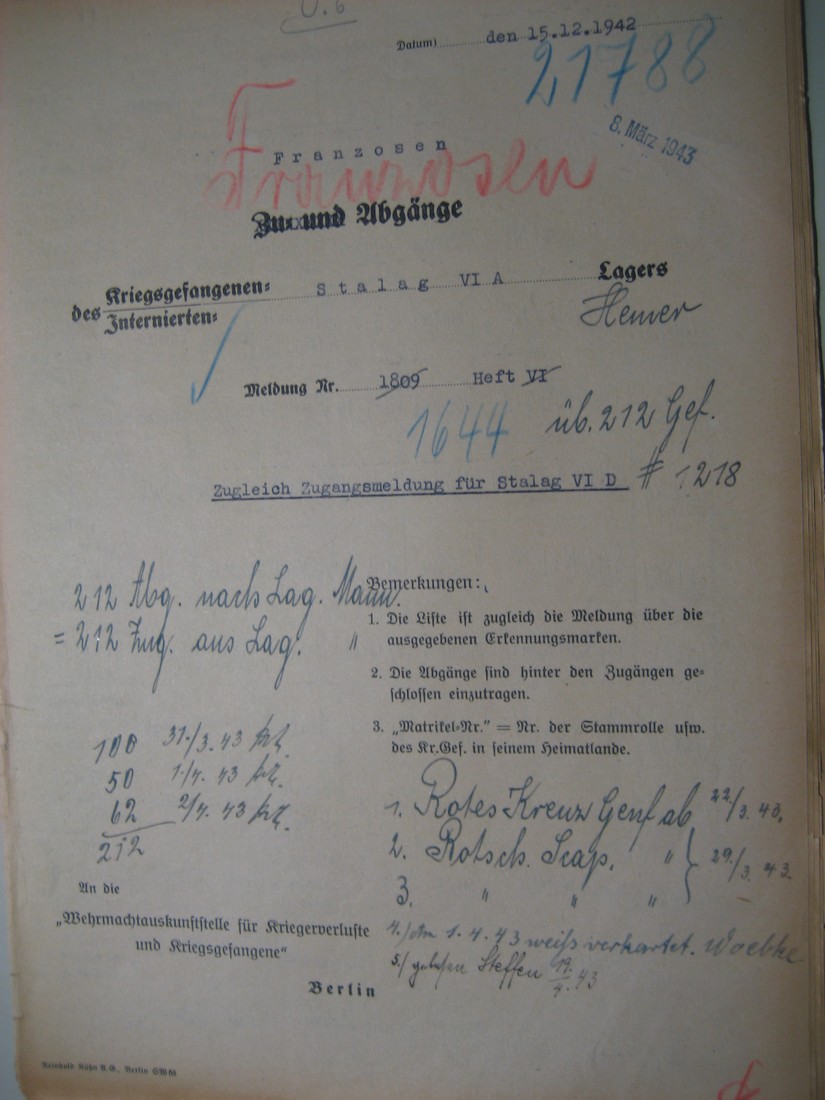 U. 6
(Datum) den 15.12.1942
21788
8. März 1943
Franzosen
Franzosen
Zu- und Abgänge
des Kriegsgefangenen= Stalag VI A Lagers
Internierten=
Hemer
Meldung Nr. 1809 Heft VI
1644 üb. 212 Gef.
Zugleich Zugangsmeldung für Stalag VI D # 1218
212 Abg. nach Lag. Mann.
= 212 Zug. aus Lag. "
Bemerkungen:
1. Die Liste ist zugleich die Meldung über die
ausgegebenen Erkennungsmarken.
2. Die Abgänge sind hinter den Zugängen ge=
schlossen einzutragen.
3. „Matrikel=Nr." = Nr. der Stammrolle usw.
des Kr.Gef. in seinem Heimatlande.
100 31./3. 43
50 1./4. 43
62 2/4. 43
212
1. Rotes Kreuz Genf ab 22/3. 43.
2. Rotsch. Scap. " 29./3. 43.
3. " " "
4.) Am 1. 4. 43 weiß verkartet. Woebke
5.) gelesen Steffen 19./4. 43
An die
„Wehrmachtauskunftstelle für Kriegerverluste
und Kriegsgefangene"
Berlin
Reinhold Kühn A.G., Berlin SW 68